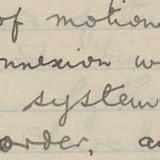 of motion
connexion w
system
order, a